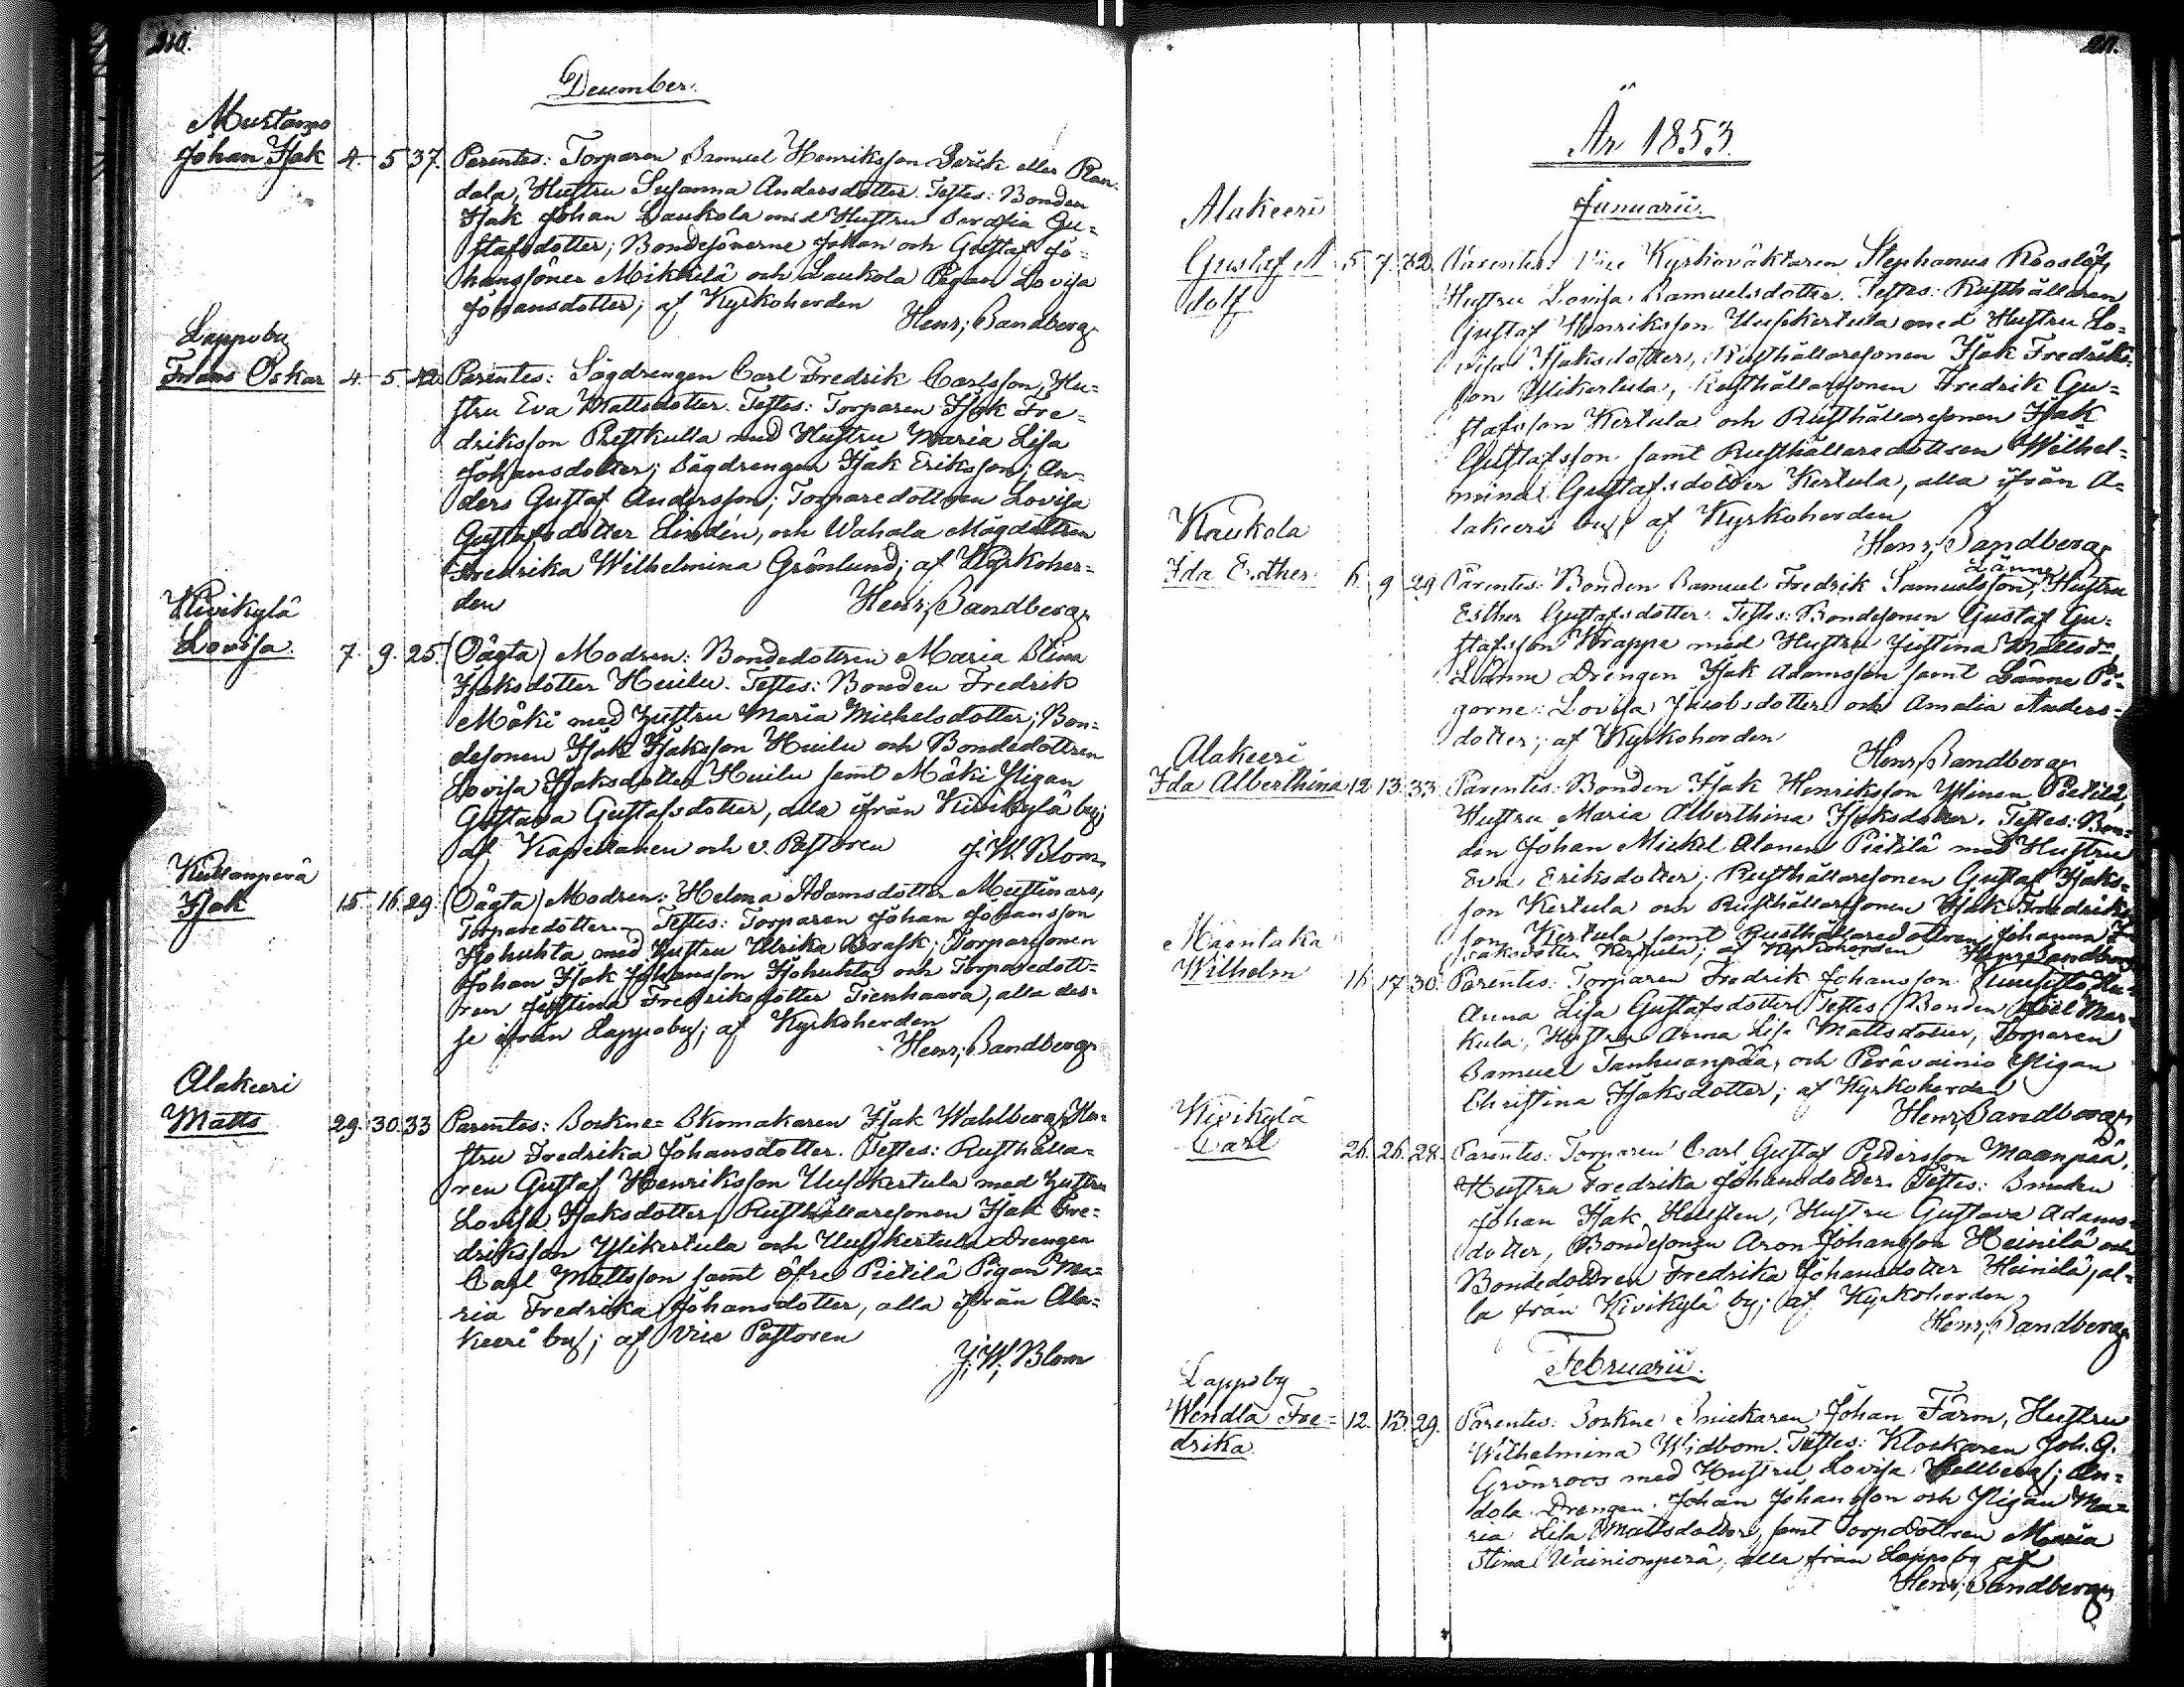 210.
December.
Mustamo
Johan Isak 4. 5 37. Parentes: Torparen Samuel Henriksson eller Ran-
dala, Hustru Susanna Andersdotter. Testes: Bonden
Isak Johan Laukola med Hustru Serafia Gu=
stafsdotter; Bondesönerne Johan och Gustaf Jo=
hanssöner Mikkilä och Laukola Pigan Lovisa
Johansdotter; af Kyrkoherden
Henr; Sandberg
Lappoby
Frans Oskar 4. 5. 42. Parentes: Sågdrengen Carl Fredrik Carlsson, Hu=
stru Eva Mattsdotter. Testes: Torparen Isak Fre=
driksson Prestkulla med Hustru Maria Lisa
Johansdotter; Sågdrengen Isak Eriksson; An=
ders Gustaf Andersson; Torparedottren Lovisa
Gustafsdotter Lindén, och Wahala Mågdottren
Fredrika Wilhelmina Grönlund; af Kyrkoher=
den Henr; Sandberg
Kivikylä
Lovisa. 7. 9. 25. (Oägta) Modren: Bondedottren Maria Stina
Isaksdotter Huilu. Testes: Bonden Fredrik
Mäki med Hustru Maria Michelsdotter; Bon=
desonen Isak Isaksson Huilu och Bondedottren
Lovisa Isaksdotter Huilu samt Mäki Pigan
Gustava Gustafsdotter, alla ifrån Kivikylä by;
af Kapellanen och v. Pastoren J. W. Blom
Kuusenperä
Isak 15. 16. 29. (Oägta) Modren: Helena Adamsdotter Mustinars,
Torparedotter. Testes: Torparen Johan Johansson
Isohuhta med Hustru Ulrika Brask; Torparesonen
Johan Isak Johansson Isohuhta och Torparedott=
ren Justina Fredriksdotter Tienhaara, alla des=
se ifrån Lappoby; af Kyrkoherden
Henr; Sandberg
Alakeeri
Matts 29. 30. 33 Parentes: Sockne= Skomakaren Isak Wahlberg, Hu=
stru Fredrika Johansdotter. Testes: Rusthålla=
ren Gustaf Henriksson Uusikertula med Hustru
Lovisa Isaksdotter; Rusthållaresonen Isak Fre=
driksson Ylikertula och Uusikertula Drengen
Carl Mattsson samt öfre Pietilä Pigan Ma=
ria Fredrika Johansdotter, alla ifrån Ala=
keeri by; af Vice Pastoren
J. W. Blom
211.
År 1853.
Januarii.
Alakeeri
Gustaf A= 5. 7. 32. Parentes: Vice Kyrkoväktaren Stephanus Rooslöf,
dolf Hustru Lovisa Samuelsdotter. Testes: Rusthållaren
Gustaf Henriksson Uusikertula med Hustru Lo=
visa Isaksdotter, Rusthållaresonen Isak Fredriks=
son Ylikertula, Rusthållaresonen Fredrik Gu=
stafsson Kertula och Rusthållaresonen Isak
Gustafsson samt Rusthållaredottren Wilhel=
mina Gustafsdotter Kertula, alla ifrån A=
lakeeri by; af Kyrkoherden
Henr; Sandberg
Kaukola
Ida Esther 6. 9 29. Parentes: Bonden Samuel Fredrik Samuelsson Länne, Hustru
Esther Gustafsdotter. Testes: Bondesonen Gustaf Gu=
stafsson Krappe med Hustru Justina Mattsd=r,
Länne Drengen Isak Adamsson samt Länne Pi=
gorne: Lovisa Jacobsdotter och Amalia Anders=
dotter; af Kyrkoherden
Henr; Sandberg
Alakeeri
Ida Alberthina 12 13. 33. Parentes: Bonden Isak Henriksson Ylinen Pietilä,
Hustru Maria Alberthina Isaksdotter. Testes: Bon=
den Johan Mickel Alanen Pietilä med Hustru
Eva Eriksdotter; Rusthållaresonen Gustaf Isaks=
son Kertula och Rusthållaresonen Isak Fredriks=
son Kertula samt Rusthållaredottren Johanna I=
saksdotter Kertula; af Kyrkoherden Henr; Sandberg
Mäentaka
Wilhelm 16 17 30. Parentes: Torparen Fredrik Johansson Uusitalo, Hu=
Anna Lisa Gustafsdotter. Testes: Bonden Mar=
kula, Hustru Anna Lisa Mattsdotter, Torparen
Samuel Tanhuanpää, och Perävainio Pigan
Christina Isaksdotter; af Kyrkoherden
Henr; Sandberg
Kivikylä
Carl 26. 26. 28. Parentes: Torparen Carl Gustaf Pettersson Maanpää,
Hustru Fredrika Johansdotter. Testes: Bonden
Johan Isak Hellsten, Hustru Gustava Adams=
dotter, Bondesonen Aron Johansson Heinilä och
Bondedottren Fredrika Johansdotter Heinilä, al=
la från Kivikylä by; af Kyrkoherden
Henr; Sandberg
Februarii.
Lappoby
Wendla Fre= 12. 13. 29. Parentes: Sockne Snickaren Johan Färm, Hustru
drika. Wilhelmina Widbom. Testes: Klockaren Joh. G.
Grönroos med Hustru Lovisa Hellberg; An=
dola Drengen Johan Johansson och Pigan Ma=
ria Lisa Mattsdotter, samt Torpdottren Maria
Stina Wainionperä, alla från Lappoby af
Henr; Sandberg